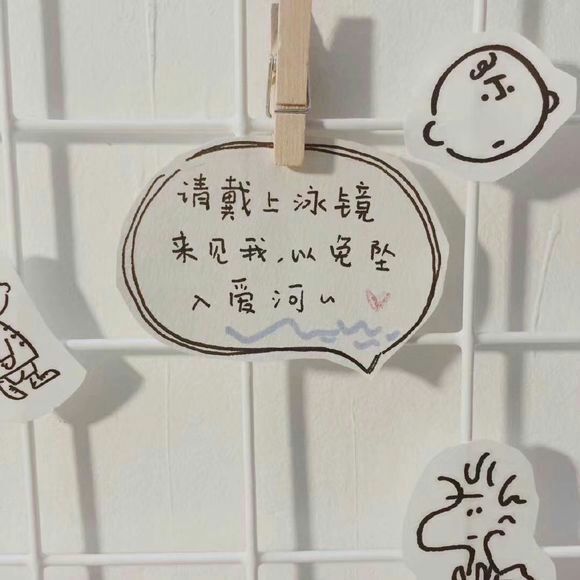 请戴上泳镜
来见我,以免坠
入爱河~